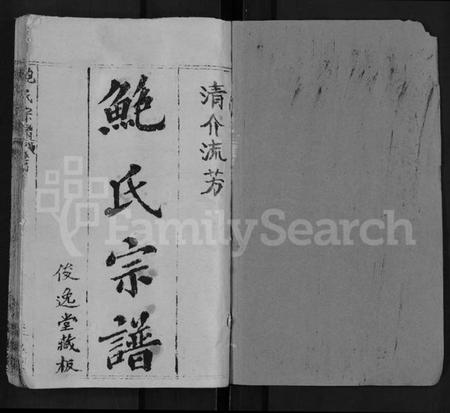 清介流芳
鮑氏宗譜
俊逸堂藏板
鮑氏宗譜
FamilySearch